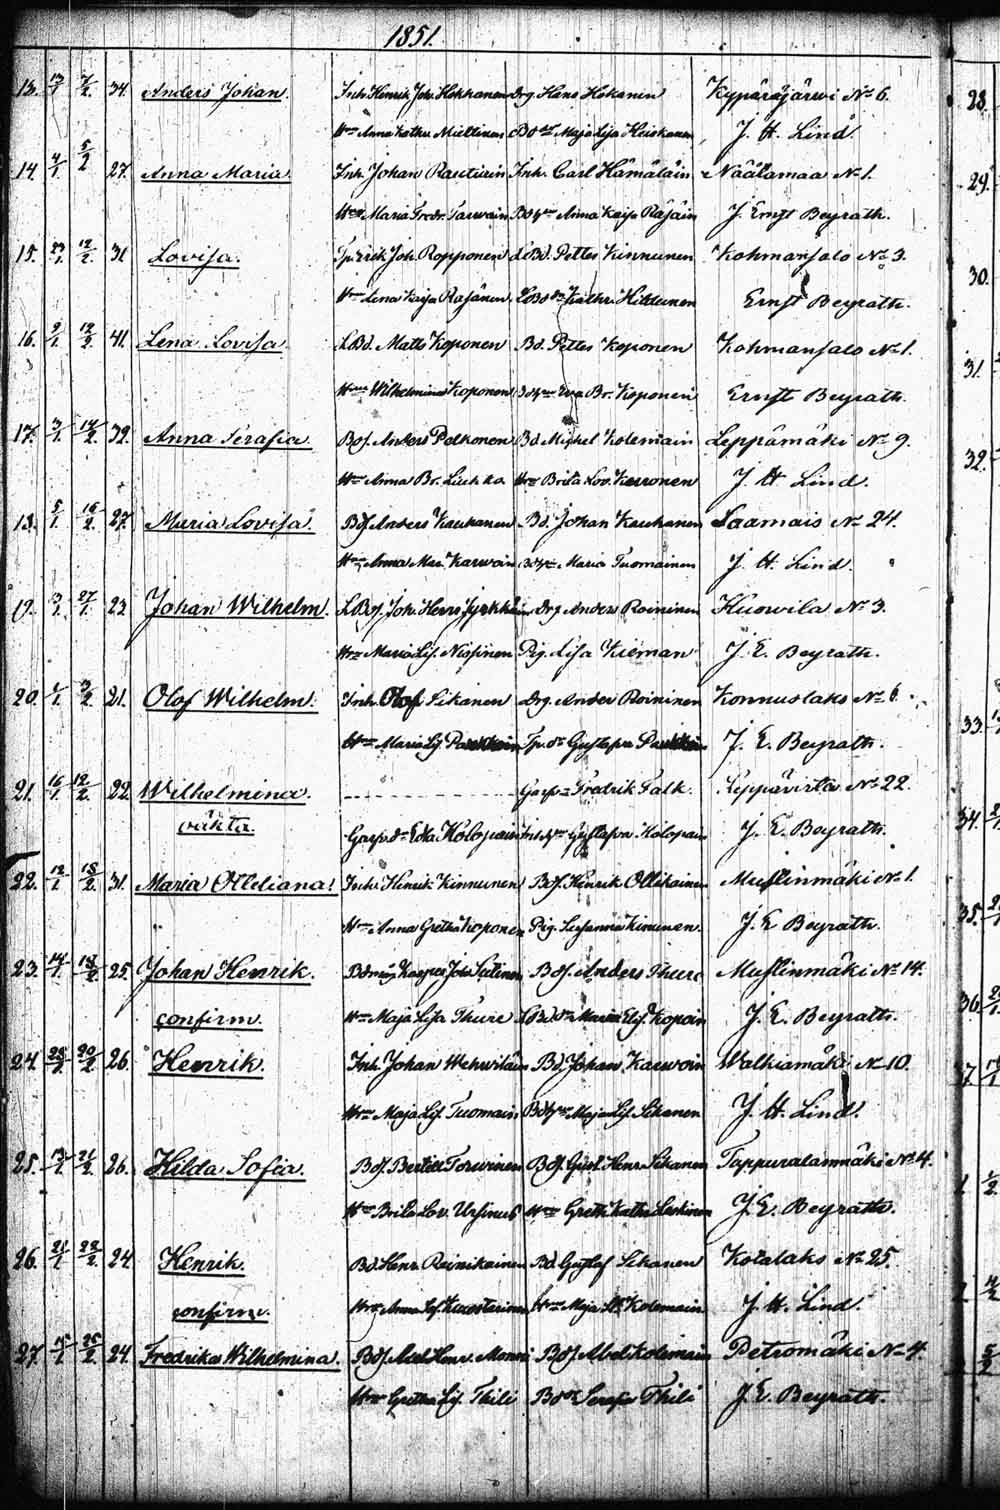 1851.
13. 13/1 7/2. 34. Anders Johan. Inh. Henrik Joh. Hokkanen Drg. Hans Hokanen Kypäräjärwi No 6.
Hru Anna Kathr. Miettinen Bddr Maja Lisa Heiskanen J. H. Lind.
14. 4/1. 5/2 27. Anna Maria. Inh. Johan Rautiain Inh. Carl Hämäläin Näälamaa No 1.
Hru Maria Fredr. Tarwain Bdhru Anna Kaisa Räsäin J. Ernst Beyrath.
15. 23/1. 12/2. 31. Lovisa. Tp. Erik Joh. Ropponen LBd. Petter Kinnunen Kohmansalo No 3.
Hru Lena Kaisa Räsänen LBddr Kathr. Hiltunen Ernst Beyrath.
16. 9/1. 12/2. 41. Lena Lovisa LBd. Matts Koponen Bd. Petter Koponen Kohmansalo No 1.
Hru Wilhelmina Koponen Bdhru Eva Br. Koponen Ernst Beyrath.
17. 3/1. 14/2. 32. Anna Serafia. Bdf. Anders Pelkonen Bd Michel Kolemain Leppämäki No 9.
Hru Anna Br. Hru Brita Lov. J. H. Lind.
18. 5/1. 16/2. 27. Maria Lovisa Bdf Anders Kauhanen Bd. Johan Kauhanen Saamais No 24.
Hru Anna Mar. Karwain Bdhru Maria Tuomainen J. H. Lind.
19. 3/1. 27/1. 23. Johan Wilhelm. LBdf. Joh. Henr. Jyrkkäin Drg Anders Roininen Kuowila No 3.
Hru Maria Lis. Nissinen Pig. Lisa J. E. Beyrath.
20. 1/1. 3/2. 21. Olof Wilhelm. Inh. Olof Sikanen Drg. Ander Roininen Konnuslaks No 6.
Hru Maria Lis. Parkkain Tp. dr Gustafva J. E. Beyrath.
21. 16/1. 12/2. 22. Wilhelmina. Garfv. Fredrik Falk. Leppävirta No 22.
oäkta. Garfv. dr Edla Kolopain Inhhru Gustafva Kolopain J. E. Beyrath.
22. 12/1. 18/2. 31. Maria Inh. Henrik Kinnunen Bdf. Henrik Ollikainen Mustinmäki No 1.
Hru Anna Gretha Koponen Pig. Susanna Kinnunen. J. E Beyrath.
23. 14/1. 18/2. 25. Johan Henrik. Bdmåg Kasper Joh. Bdf. Anders Thure Mustinmäki No 14.
confirm. Hru Maja Lisa Thure LBd.dr Maria Elis. J. E. Beyrath.
24. 28/1. 20/2. 26. Henrik. Inh. Johan Wehwiläin Bd. Johan Karwoin Walkiamäki No 10.
Hru Maja Lis. Tuomain Bdhru Maja Lis. Sikanen J. H. Lind.
25. 13/1. 21/2. 26. Hilda Sofia. Bdf. Bertel Torwinen Bdf. Gust. Henr. Sikanen Tappuralanmäki No 4.
Hru Brita Lov. Ursinus Hru Greta Kathr. Leskinen J. E. Beyrath.
26. 21/1. 22/2. 24. Henrik. Bd. Henr. Reinikainen Bd. Gustaf Sikanen Kotalaks No 25.
confirm. Hru Anna Lis. Hru Maja Lis. Kolemain J. H. Lind.
27. 15/1. 25/2. 24. Fredrika Wilhelmina. Bdf. Axel Henr. Monni Bdf Abel Kolemain Petromäki No 4.
Hru Gretha Lis. Thili Bddr Serafia Thili J. E. Beyrath.
28.
29.
30.
31.
32.
33.
34.
35.
36.
37.